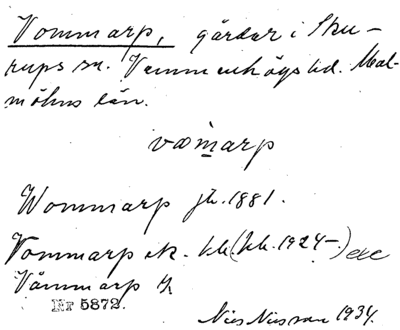 Vommarp, gårdar i Sku-
rups sn. Vemmenhögs hd. Mal-
möhus län.
væmarp
Wommarp jb. 1881.
Vommarp ek. kb. (hb. 1924-.)
Vämmarp
Nr 5872.
Nils Nilsson 1934.